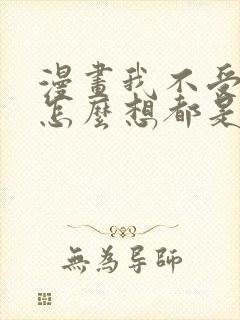 漫畫我不受
怎麼想都是
無為导師